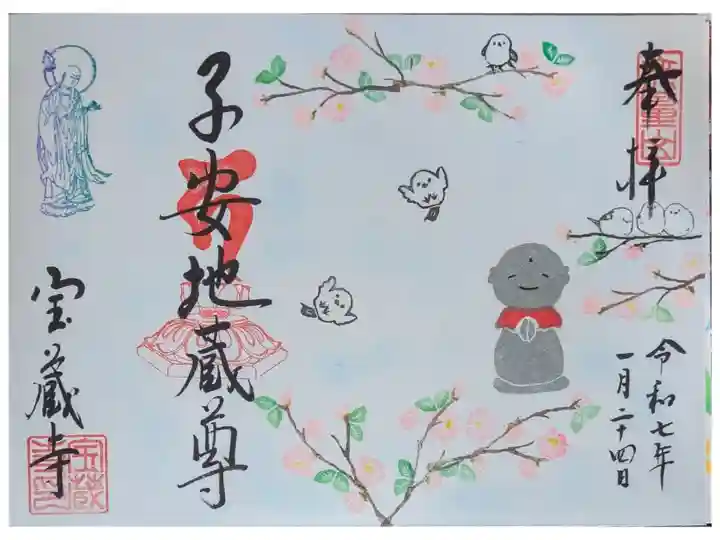 奉拝
令和七年
一月二十四日
子安地蔵尊
宝蔵寺